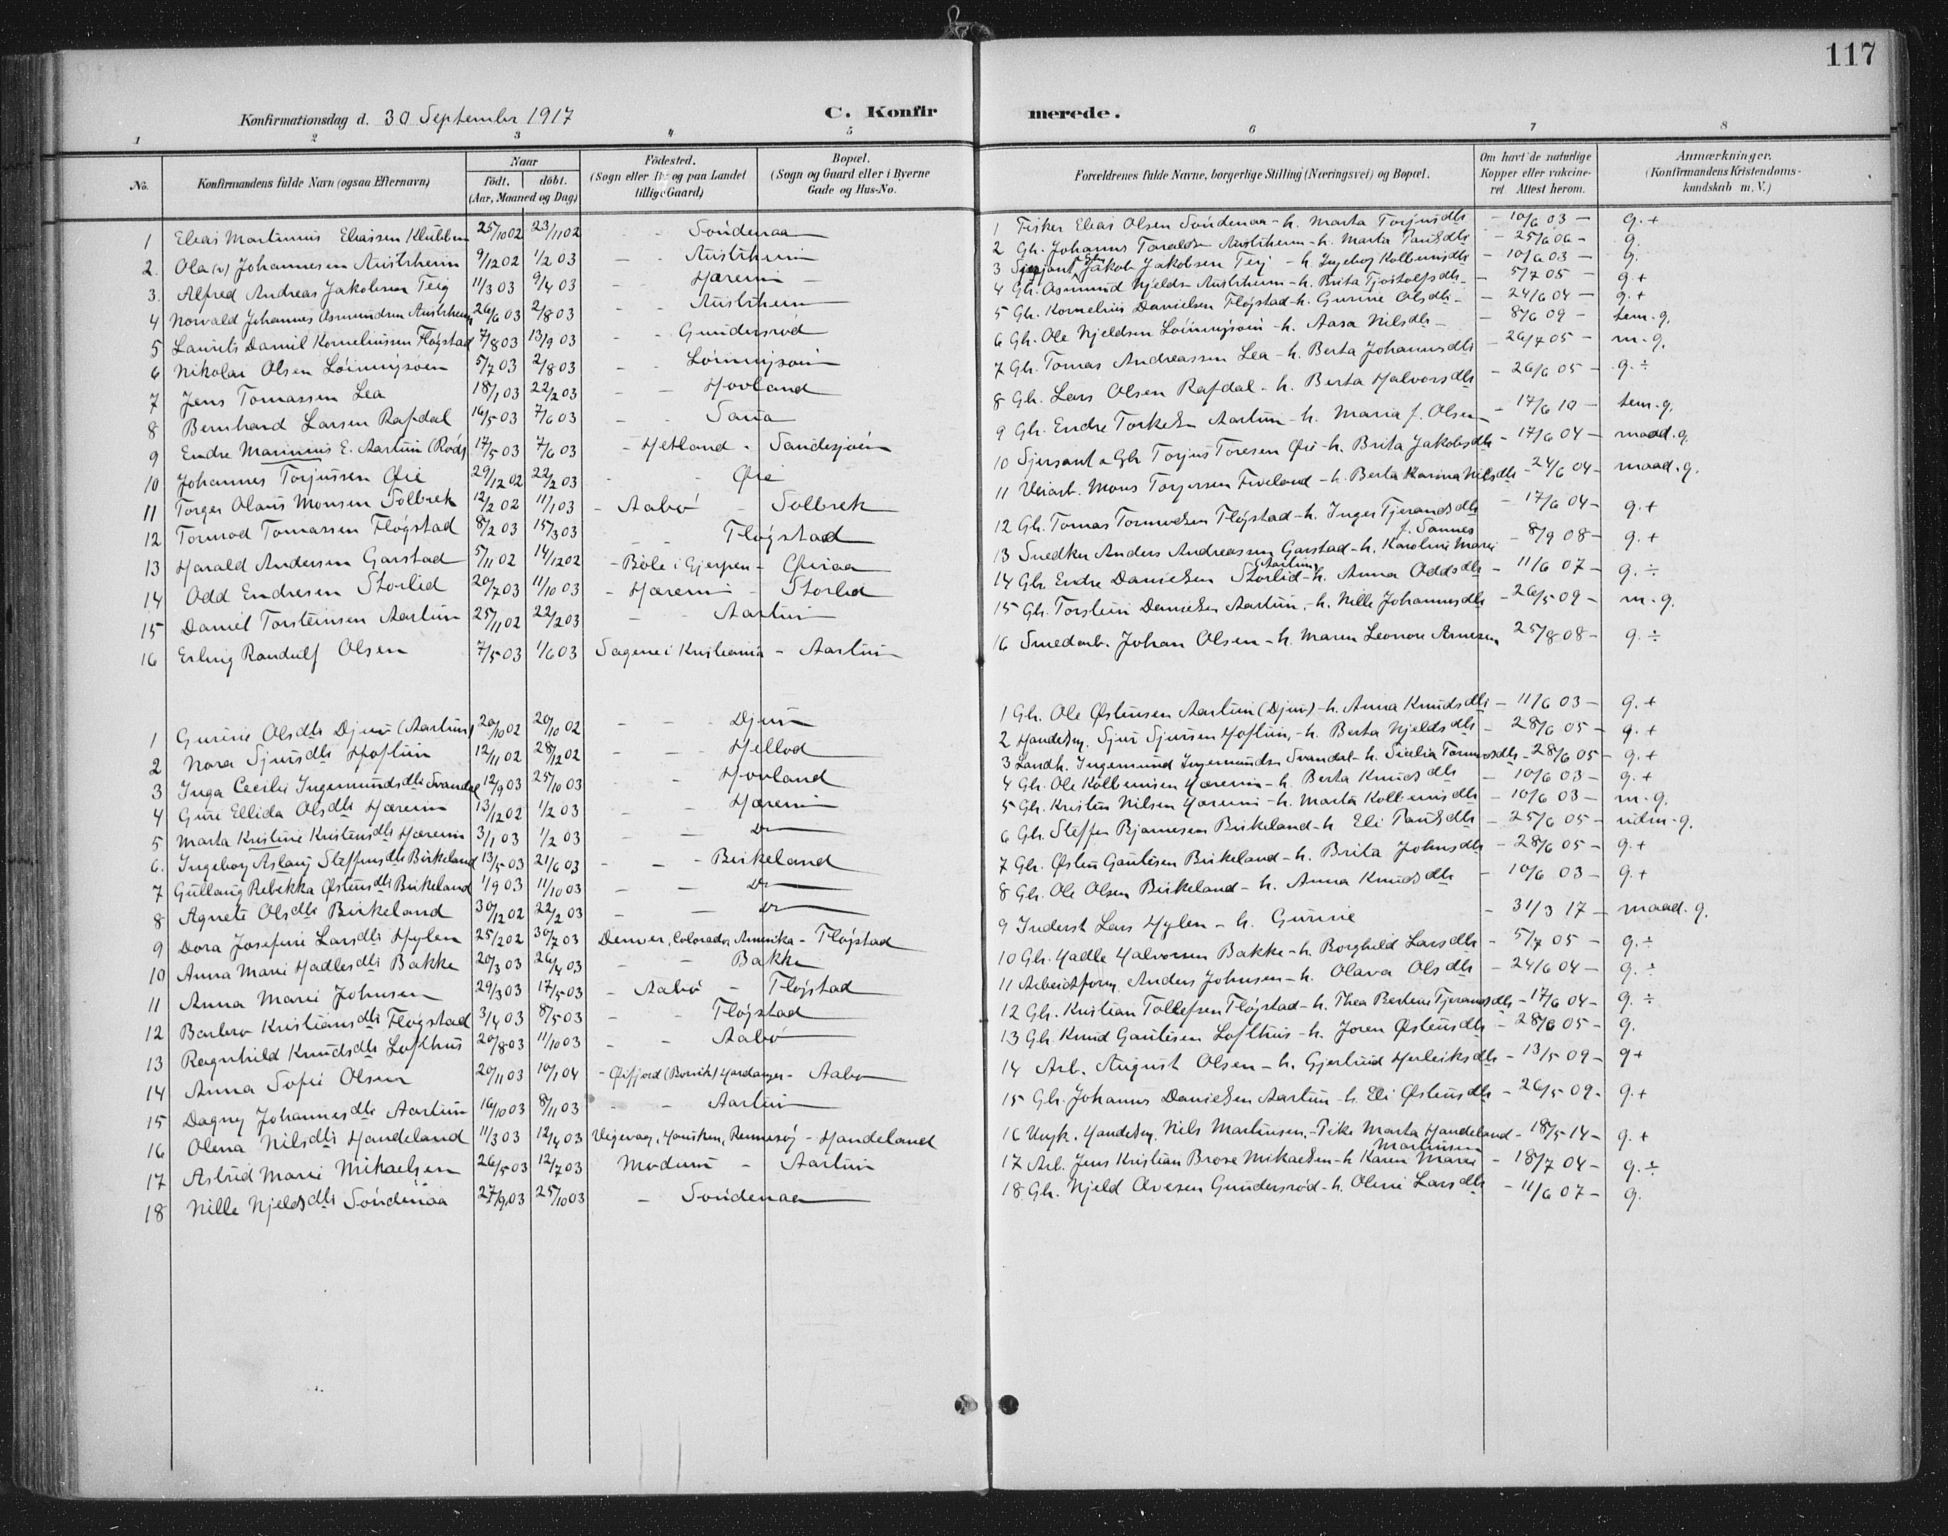 117
Konfirmationsdag d. 30 September 1917
C. Konfirmerede.
1 2 3 4 5 6 7 8
No.
Konfirmandens fulde Navn (ogsaa Efternavn)
Naar
født. døbt.
(Aar, Maaned og Dag)
Fødested.
(Sogn eller By og paa Landet tillige Gaard)
Bopæl.
(Sogn og Gaard eller i Byerne Gade og Hus-No.
Forældrenes fulde Navne, borgerlige Stilling (Næringsvei) og Bopæl.
Om havt de naturlige Kopper eller vakcineret. Attest herom.
Anmærkninger.
(Konfirmandens Kristendomskundskab m. V.)
1 Elias Martinius Eliassen Klubben 25/10 02 23/11 02 - - Søndenaa 1 Fisker Elias Olsen Søndenaa - h. Marta Torjusdtr - 10/6 03 - g. +
2. Ola(v) Johannesen Austrheim 9/12 02 1/2 03 - - Austrheim 2 Gb. Johannes Taraldsen Austrheim - h. Marta Paulsdtr - 25/6 06 - g.
3. Alfred Andreas Jakobsen Teig 11/3 03 9/4 03 - - Hærem 3 Jakob Jakobsen Teig - h. Ingeborg Kolbeinsdtr - 10/6 03 - g.
4 Norvald Johannes Asmundsen Austrheim 26/6 03 2/8 03 - - Austrheim 4 Gb. Asmund Njelds. Austrheim - h. Brita Tjostolfsdtr - 5/7 05 - g +
5 Laurits Daniel Korneliussen Fløgstad 7/8 03 13/9 03 - - Gundersrød 5 Gb. Kornelius Danielsen Fløgstad - h. Gurine Olsdtr - 24/6 04 - g. +
6 Nikolai Olsen Løiningsøen 5/7 03 2/8 03 - - Løiningsøen 6 Gb. Ole Njeldsen Løiningsøen - h. Aasa Nilsdtr - 8/6 09 - tem. g.
7 Jens Tomassen Lea 18/1 03 22/2 03 - - Hovland 7 Gb. Tomas Andreassen Lea - h. Berta Johannesdtr - 26/7 05 - m - g.
8 Bernhard Larsen Rafdal 16/5 03 7/6 03 - - Sana 8 Gb. Lars Olsen Rafdal - h. Berta Halvorsdtr - 26/6 05 - g. ÷
9 Endre Marinius E. Aartun 17/5 03 7/6 03 - Hetland - Sandesjøen 9 Gb. Endre Torkelsen Aartun - h. Maria f. Olsen - 17/6 10 - tem. g.
10 Johannes Torjussen Øie 29/12 02 22/2 03 - - Øie 10 Torjus Toresen Øie - h. Brita Jakobsdtr - 17/6 04 - maad. g.
11 Torger Olaus Monsen Solbrek 12/2 02 11/1 03 - Aabø - Solbrek 11 Veiarb. Mons Torgersen Fiveland - h. Berta Karina Nilsdtr - 24/6 04 - maad. g.
12 Tormod Tomassen Fløgstad 8/2 03 15/3 03 - - Fløgstad 12 Gb. Tomas Tormodsen Fløgstad - h. Inger Tjerandsdtr - 17/6 04 - g. +
13 Harald Andersen Garstad 5/11 02 14/12 02 - Bøle i Gjerpen - 13 Snedker Anders Andreassen Garstad - h. Karoline Marie f. Sannes - 8/9 08 - g. +
14 Odd Endresen Storlid 20/7 03 11/10 03 - Hærem - Storlid 14 Gb. Endre Danielsen Storlid Aartun - h. Anna Oddsdtr - 11/6 07 - g. ÷
15 Daniel Torsteinsen Aartun 25/11 02 22/2 03 - - Aartun 15 Gb. Torstein Danielsen Aartun, - h. Nille Johannesdtr - 26/5 09 - m - g.
16 Erling Randulf Olsen 7/5 03 1/6 03 Sagene i Kristiania - Aartun 16 Smedarb. Johan Olsen - h. Maren Leonore Arnesen 25/8 08 - g. ÷
1 Gurine Olsdtr Djuv (Aartun) 20/10 02 - - Djuv 1 Gb. Ole Østensen Aartun (Djuv) - h. Anna Knudsdtr - 11/6 03 - g. +
2 Nora Sjursdtr Hoftun 12/11 02 28/12 02 - - Hellod 2 Handelsm. Sjur Sjursen Hoftun, - h. Berta Njeldsdtr - 28/6 05 - g. +
3 Inga Cecilie Ingemundsdtr Svandal 12/9 03 25/10 03 - - Hovland 3 Landh. Ingemund Ingemundsen Svandal - h. Siselia Tormodsdtr - 28/6 05 - g. +
4 Guri Ellida Olsdtr Hærem 13/12 02 1/2 03 - - Hærem 4 Gb. Ole Kolbeinsen Hærem - h. Berta Knudsdtr - 10/6 03 - g. +
5 Marta Kristine Kristensdtr Hærem 3/1 03 1/2 03 - - Do 5 Gb. Kristen Nilsen Hærem - h. Marta Kolbeinsdtr - 10/6 03 - m - g.
6. Ingeborg Aslaug Steffensdtr Birkeland 13/5 03 21/6 03 - - Birkeland 6 Gb. Steffen Bjarnesen Birkeland - h Eli Paulsdtr - 25/6 05 - udm. g.
7 Gullaug Rebekka Østensdtr Birkeland 1/9 03 11/10 03 - - Do 7 Gb. Østen Gautesen Birkeland - h. Brita Johnsdtr - 28/6 05 - g. +
8 Agnete Olsdtr Birkeland 30/12 02 22/2 03 - - Do 8 Gb. Ole Olsen Birkeland - h. Anna Knudsdtr - 10/6 03 - g. +
9 Dora Josefine Larsdtr Hylen 25/2 02 30/7 03 Denver, Colorado, Amerika - Fløgstad 9 Inderst Lars Hylen - h. Gurine - 31/3 17 - maad. g.
10 Anna Marie Hadlesdtr Bakke 20/3 03 26/4 03 - - Bakke 10 Gb. Hadle Halvorsen Bakke - h. Borghild Larsdtr - 5/7 05 - g. ÷
11 Anna Marie Johnsen 29/3 03 17/5 03 - Aabø - Fløgstad 11 Arbeidsform. Anders Johnsen - h. Olava Olsdtr - 24/6 04 - g. ÷
12 Barbro Kristiansdtr Fløgstad 3/4 03 8/5 03 - - Fløgstad 12 Gb. Kristian Tollefsen Fløgstad - h. Thea Bertine Tjerandsdtr - 17/6 04 - g. ÷
13 Ragnhild Knudsdtr Lofthus 20/8 03 11/10 03 - - Aabø 13 Gb. Knud Gautesen Lofthus - h. Joren Østensdtr - 28/6 05 - g.
14 Anna Sofie Olsen 20/11 03 10/1 04 - Hardanger - Aabø 14 Arb. August Olsen - h. Gjertrud Herleiksdtr - 13/5 09 - g +
15 Dagny Johannesdtr Aartun 16/10 03 8/11 03 - - Aartun 15 Gb. Johannes Danielsen Aartun - h. Eli Østensdtr - 26/5 09 - g. +
16 Olena Nilsdtr Handeland 11/3 03 12/4 03 Rennesøy - Handeland 16 Ungk. Handelsm. Nils Martinsen, - Pike Marta Handeland - 18/5 14 - g. +
17 Astrid Marie Mikaelsen 26/5 03 12/7 03 Modum - Aartun 17 Arb. Jens Kristian Brose Mikaelsen - h Karen Marie Martinsen - 18/7 04 - g. ÷
18 Nille Njeldsdtr Søndenaa 27/9 03 25/10 03 - Søndenaa 18 Gb. Njeld Avesen Gundersrød - h. Oline Larsdtr - 11/6 07 - g.